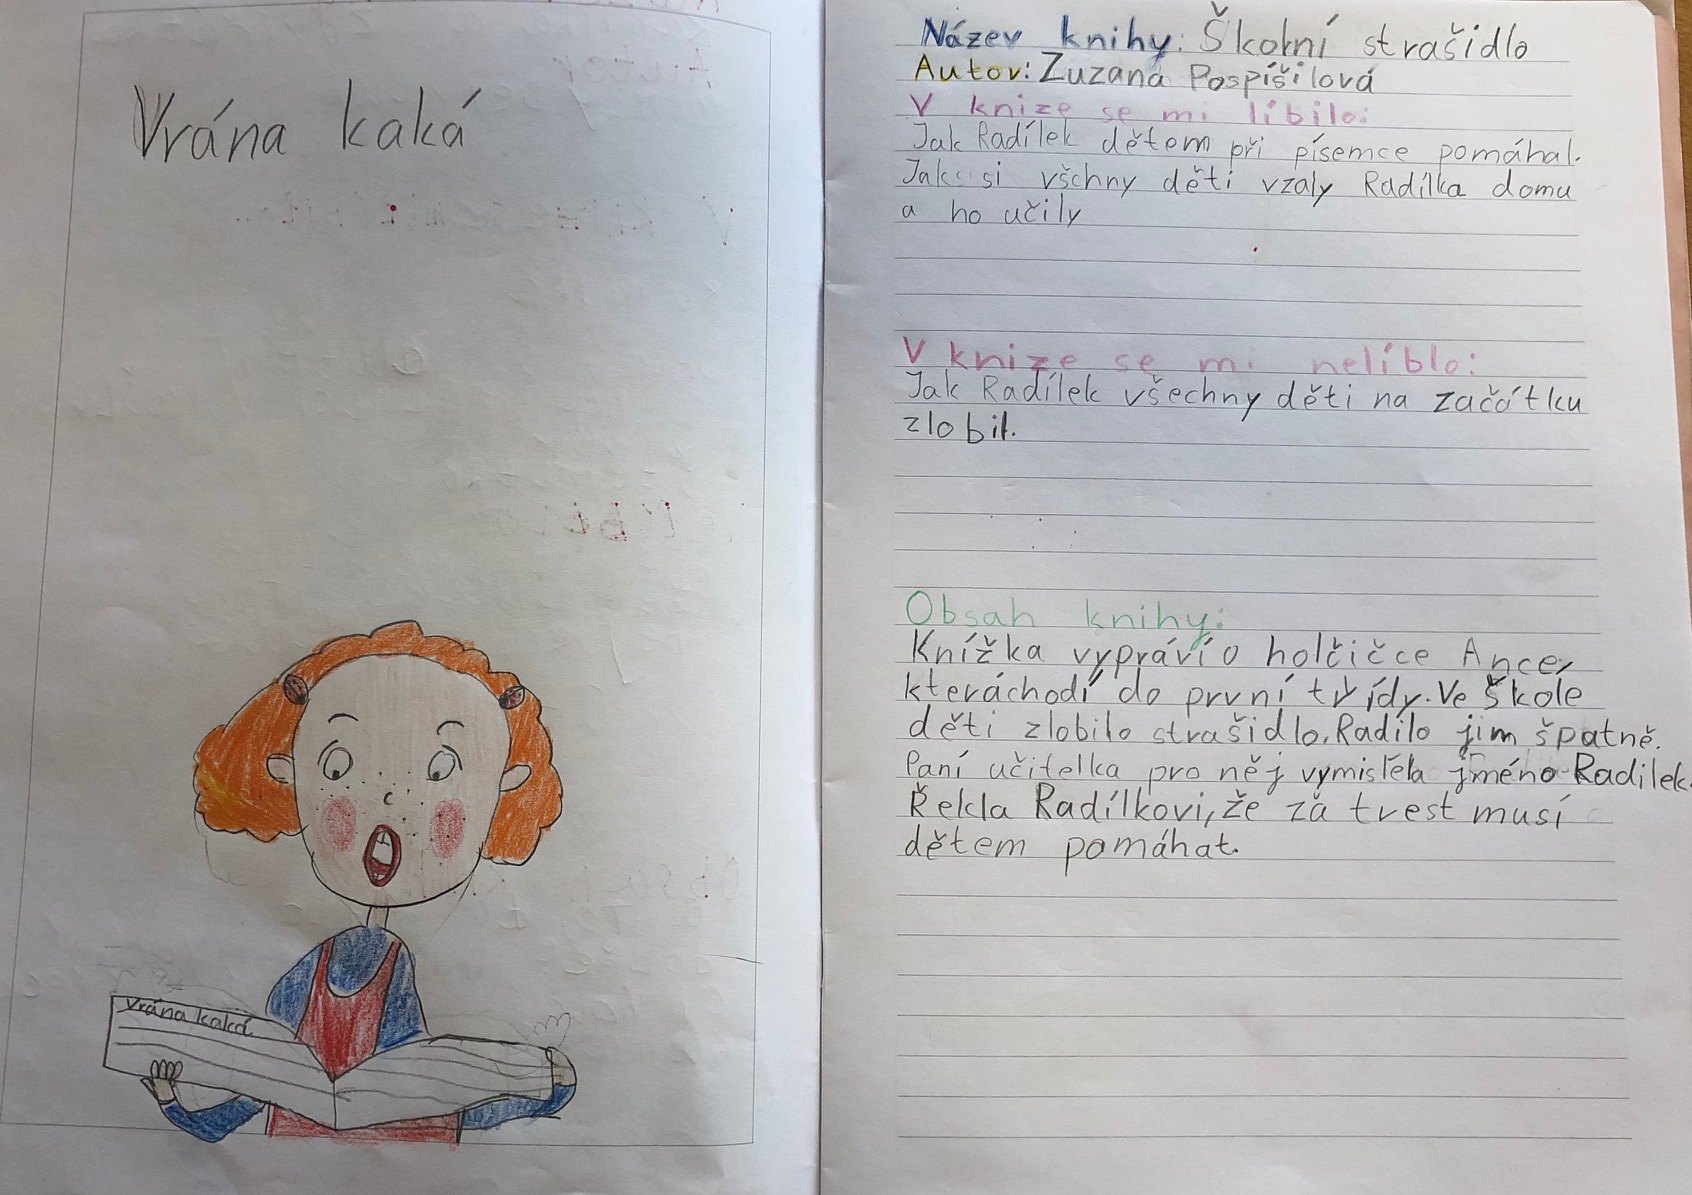 Vrána kaká
Vrána kaká
Název knihy: Školní strašidlo
Autor: Zuzana Pospíšilová
V knize se mi líbilo:
Jak Radílek dětem při písemce pomáhal.
Jak si všchny děti vzaly Radílka domu
a ho učily
V knize se mi nelíblo:
Jak Radílek všechny děti na začátku
zlobil.
Obsah knihy:
Knížka vypráví o holčičce Ance,
kteráchodí do první třídy. Ve škole
děti zlobilo strašidlo. Radilo jim špatně.
Paní učitelka pro něj vymislela jméno Radilek.
Řekla Radílkovi, že za trest musí
dětem pomáhat.